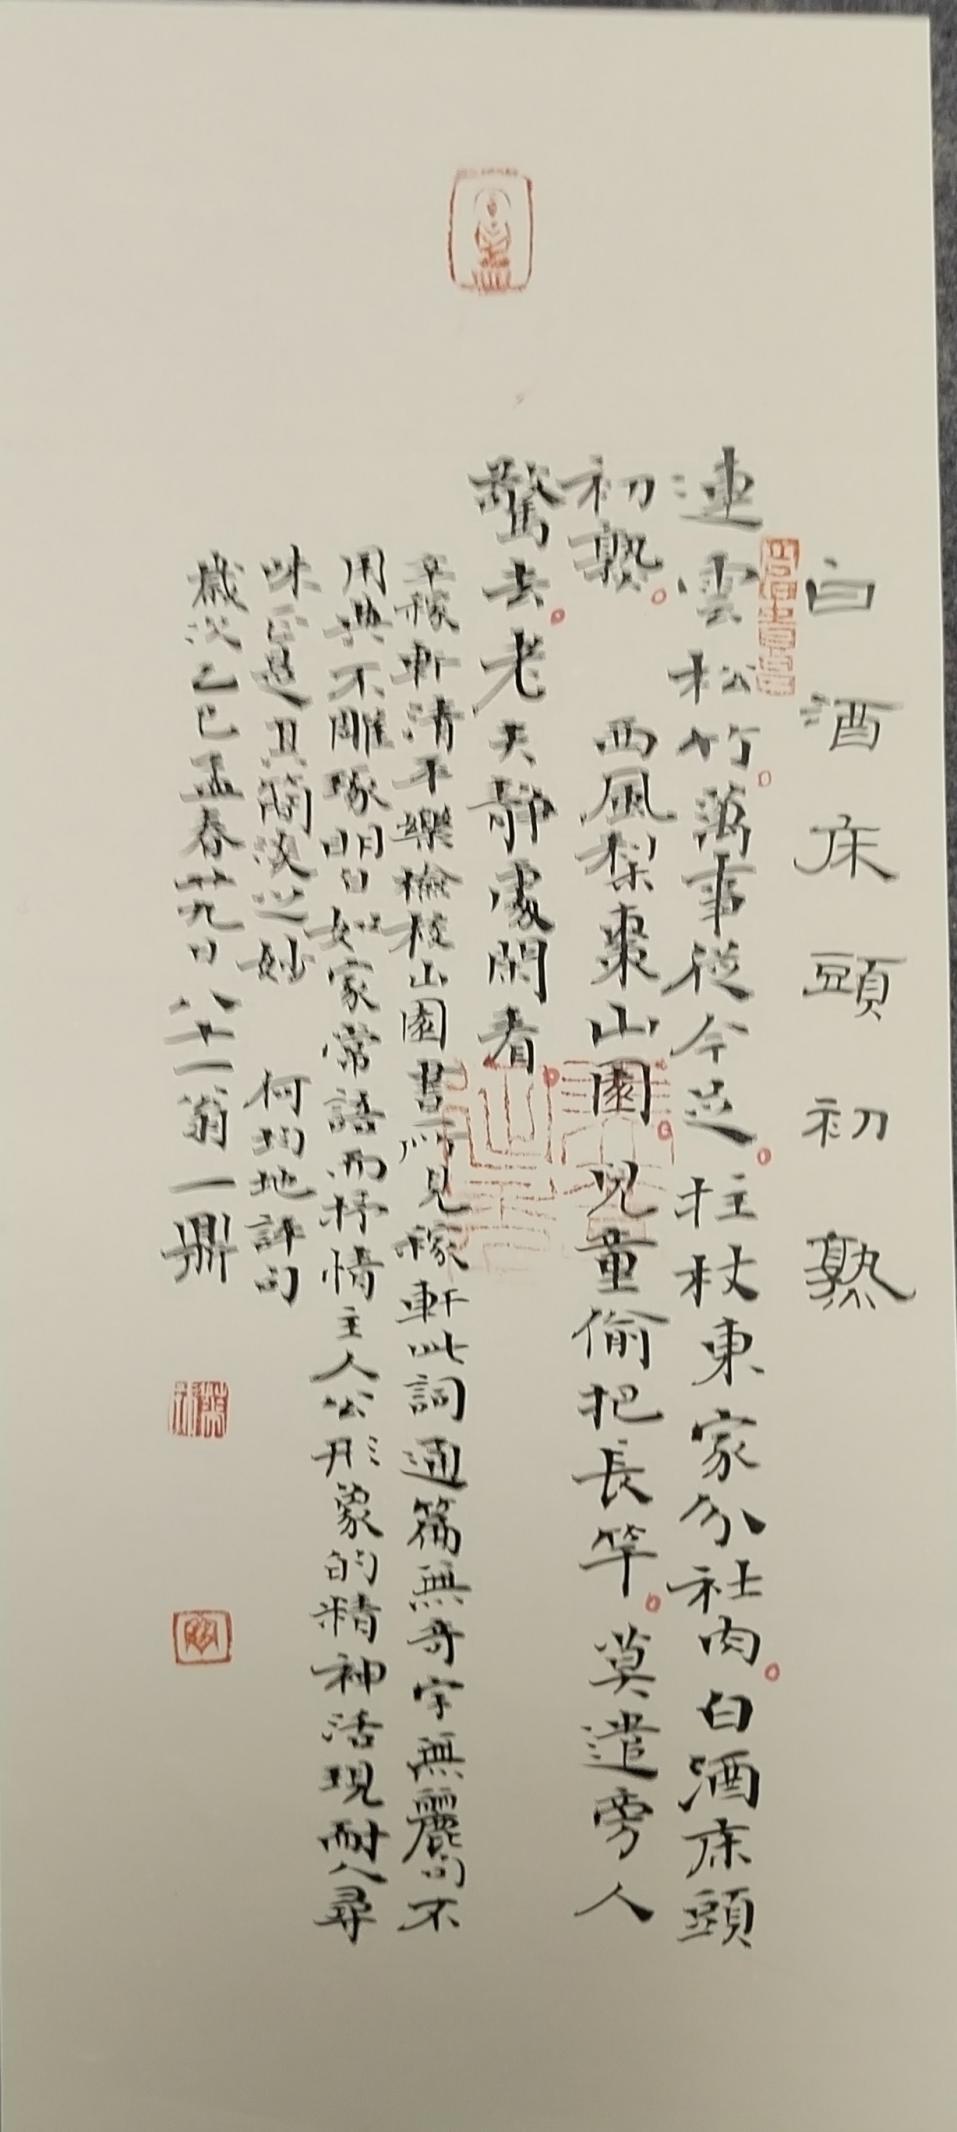 白酒床頭初熟
連雲松竹。萬事從今足。拄杖東家分社肉。白酒床頭
初熟。 西風梨棗山園。兒童偷把長竿。莫遣旁人
驚去。老夫靜處閑看。
辛稼軒清平樂檢校山園書所見稼軒此詞通篇無奇字無麗句不
用典不雕琢明白如家常語而抒情主人公形象的精神活現耐人尋
味正是其簡淡之妙 何均地評句
歲次乙巳孟春廿九日八十一翁一鼎